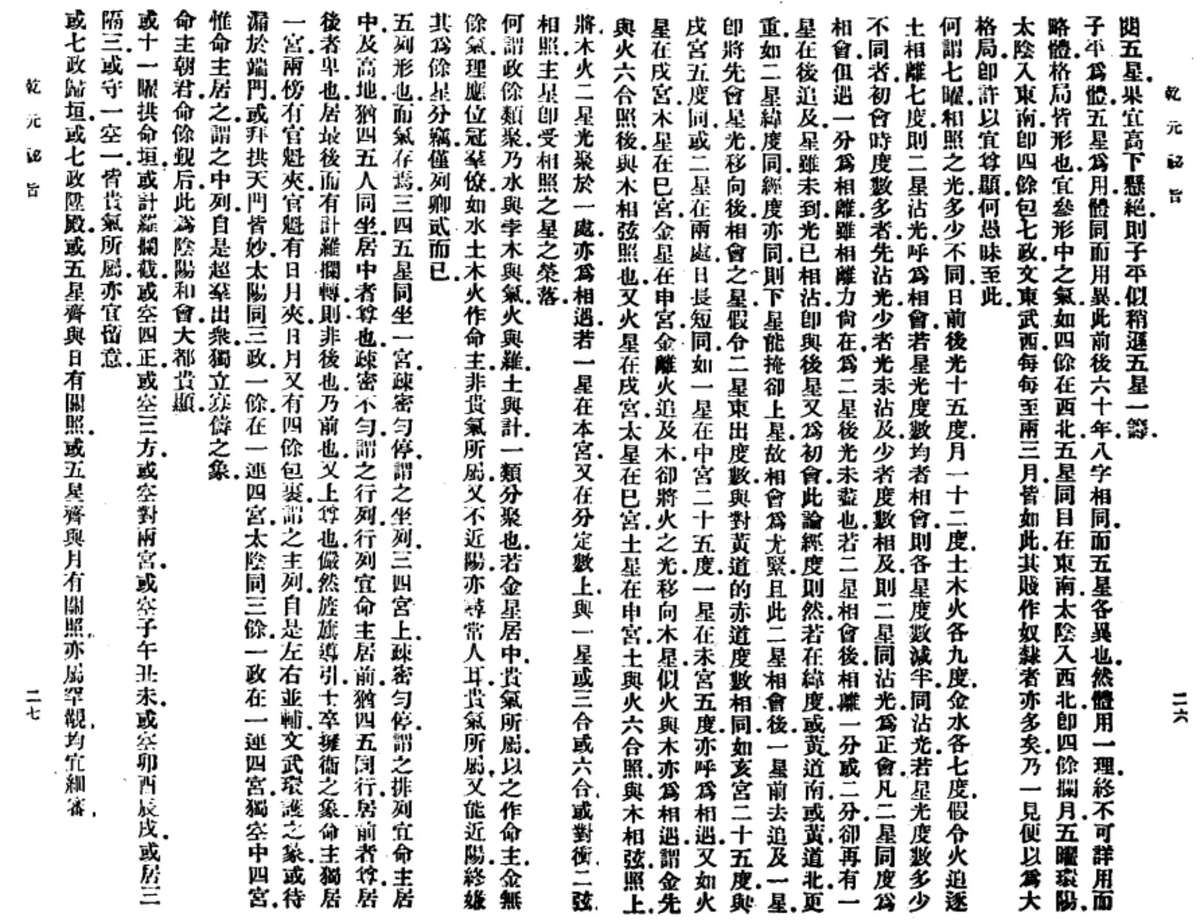 乾元祕旨
二六
閱五星果宜高下懸絕則子平似稍遜五星一籌
子平爲體五星爲用體同而用異此前後六十年八字相同而五星各異也然體用一理終不可詳用而
略體格局皆形也宜參形中之氣如四餘在西北五星同日在東南太陰入西北卽四餘攔月五曜環陽
太陰入東南卽四餘包七政文東武西每每至兩三月皆如此其賤作奴隸者亦多矣乃一見便以爲大
格局卽許以宜尊顯何愚昧至此
何謂七曜相照之光多少不同日前後光十五度月一十二度土木火各九度金水各七度假令火追逐
土相離七度則二星沾光呼爲相會若星光度數均者相會則各星度數減半同沾光若星光度數多少
不同者初會時度數多者先沾光少者光未沾及少者度數相及則二星同沾光爲正會凡二星同度爲
相會但過一分爲相離雖相離力尙在爲二星後光未盡也若二星相會後相離一分或二分卻再有一
星在後追及星雖未到光已相沾卽與後星又爲初會此論經度則然若在緯度或黃道南或黃道北更
重如二星緯度同經度亦同則下星能掩卻上星故相會爲尤緊且此二星相會後一星前去追及一星
卽將先會星光移向後相會之星假令二星東出度數與對黃道的赤道度數相同如亥宮二十五度與
戌宮五度同或二星在兩處日長短同如一星在申宮二十五度一星在未宮五度亦呼爲相遇又如火
星在戌宮木星在巳宮金星在申宮金離火追及木卻將火之光移向木星似火與木亦爲相遇謂金先
與火六合照後與木相弦照也又火星在戌宮太星在巳宮土星在申宮土與火六合照與木相弦照上
將木火二星光聚於一處亦爲相遇若一星在本宮又在分定數上與一星或三合或六合或對衝二弦
相照主星卽受相照之星之榮落
何謂政餘類聚乃水與孛木與氣火與羅土與計一類分聚也若金星居中貴氣所屬以之作命主金無
餘氣理應位冠羣僚如水土木火作命主非貴氣所屬又不近陽亦尋常人耳貴氣所屬又能近陽終嫌
其爲餘星分竊僅列卿貳而已
五列形也而氣存焉三四五星同坐一宮疎密勻停謂之坐列三四宮上疎密勻停謂之排列宜命主居
中及高地猶四五人同坐居中者尊也疎密不勻謂之行列行列宜命主居前猶四五同行居前者尊居
後者卑也居最後而有計羅攔轉則非後也乃前也又上尊也儼然旌旗導引士卒擁衞之象命主獨居
一宮兩傍有官魁夾官魁有日月夾日月又有四餘包裹謂之主列自是左右並輔文武環護之象或待
漏於端門或拜拱天門皆妙太陽同三政一餘在一連四宮太陰同三餘一政在一連四宮獨空中四宮
惟命主居之謂之中列自是超羣出衆獨立寡儔之象
命主朝君命餘覲后此爲陰陽和會大都貴顯
或十一曜拱命垣或計羅攔截或空四正或空三方或空對兩宮或空子午丑未或空卯酉辰戌或居三
隔三或守一空一皆貴氣所屬亦宜留意
或七政歸垣或七政陞殿或五星齊與日有關照或五星齊與月有關照亦屬罕覯均宜細審
乾元祕旨
二七